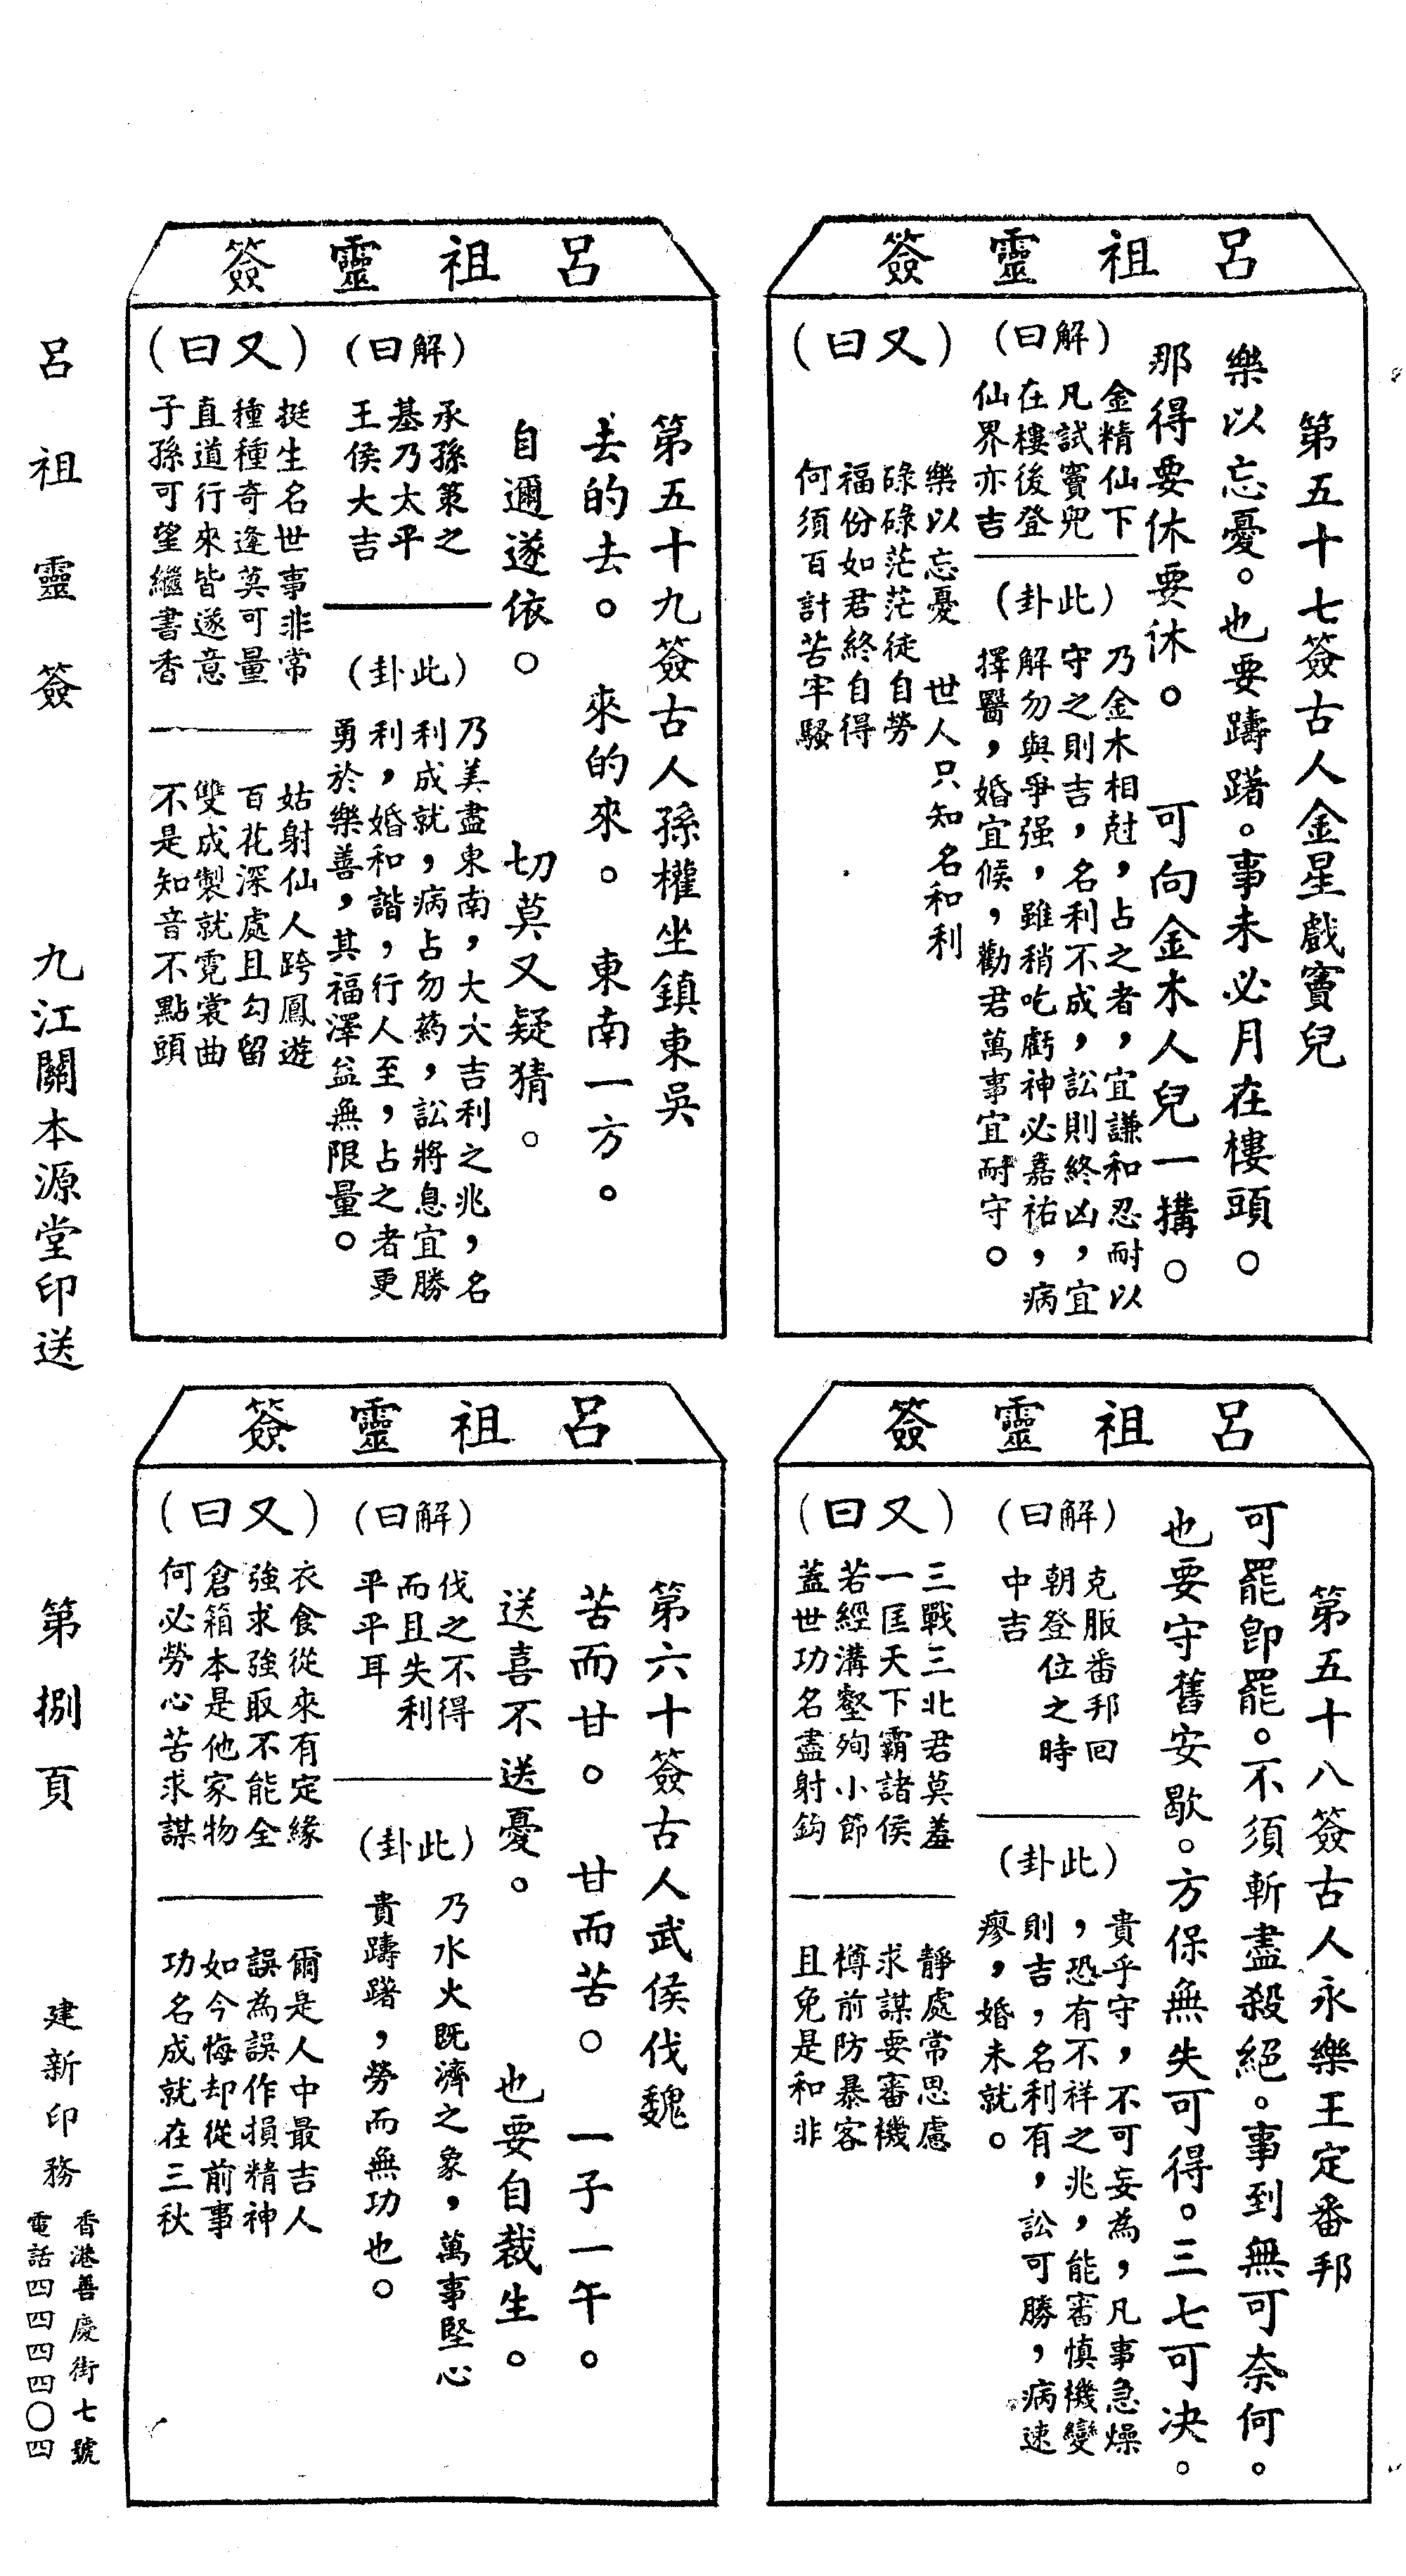 呂祖靈簽
第五十七簽古人金星戲竇兒
樂以忘憂。也要躊躇。事未必月在樓頭。
那得要休要休。可向金木人兒一搆。
（解曰）
金精仙下
凡試竇兜
在樓後登
仙界亦吉
（此卦）
乃金木相尅，占之者，宜謙和忍耐以
守之則吉，名利不成，訟則終凶，宜
解勿與爭强，雖稍吃虧神必嘉祐，病
擇醫，婚宜候，勸君萬事宜耐守。
（又曰）
樂以忘憂　世人只知名和利
碌碌茫茫徒自勞
福份如君終自得
何須百計苦牢騷
呂祖靈簽
第五十八簽古人永樂王定番邦
可罷即罷。不須斬盡殺絕。事到無可奈何。
也要守舊安歇。方保無失可得。三七可決。
（解曰）
克服番邦回
朝登位之時
中吉
（此卦）
貴乎守，不可妄為，凡事急燥
，恐有不祥之兆，能審慎機變
則吉，名利有，訟可勝，病速
瘳，婚未就。
（又曰）
三戰三北君莫羞
一匡天下霸諸侯
若經溝壑殉小節
蓋世功名盡射鈎
靜處常思慮
求謀要審機
樽前防暴客
且免是和非
呂祖靈簽
第五十九簽古人孫權坐鎮東吳
去的去。來的來。東南一方。
自邇遂依。切莫又疑猜。
（解曰）
承孫策之
基乃太平
王侯大吉
（此卦）
乃美盡東南，大大吉利之兆，名
利成就，病占勿葯，訟將息宜勝
利，婚和諧，行人至，占之者更
勇於樂善，其福澤益無限量。
（又曰）
挺生名世事非常
種種奇逢莫可量
直道行來皆遂意
子孫可望繼書香
姑射仙人跨鳳遊
百花深處且勾留
雙成製就霓裳曲
不是知音不點頭
呂祖靈簽
第六十簽古人武侯伐魏
苦而甘。甘而苦。一子一午。
送喜不送憂。也要自裁生。
（解曰）
伐之不得
而且失利
平平耳
（此卦）
乃水火既濟之象，萬事堅心
貴躊躇，勞而無功也。
（又曰）
衣食從來有定緣
強求強取不能全
倉箱本是他家物
何必勞心苦求謀
爾是人中最吉人
誤為誤作損精神
如今悔却從前事
功名成就在三秋
呂祖靈簽　九江關本源堂印送　第捌頁　建新印務
香港善慶街七號
電話四四四四〇四